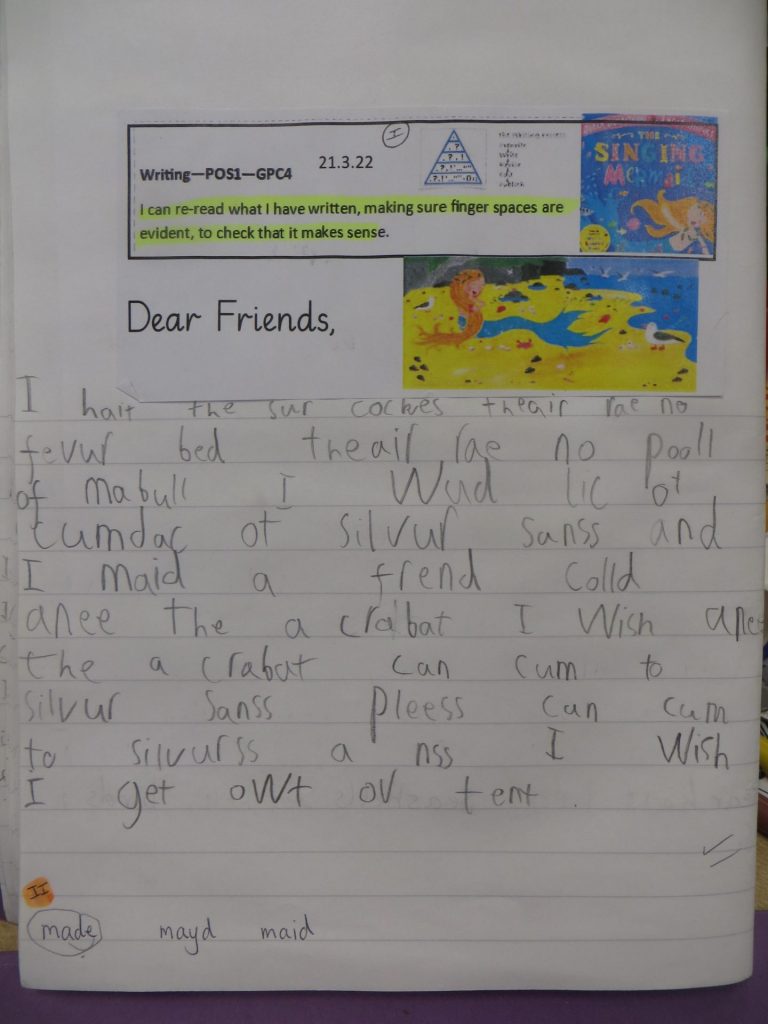 I
Writing—POS1—GPC4
21.3.22
I can re-read what I have written, making sure finger spaces are
evident, to check that it makes sense.
THE
SINGING
Mermai
Dear Friends,
I hait the sur cockes theair rae no
fevur bed theair rae no pooll
of mabull I Wud lic ot
cumdac ot silvur sanss and
I maid a frend colld
anee the a crabat I Wish anee
the a crabat can cum to
silvur sanss pleess can cum
to silvurss a nss I Wish
I get owt ov tent .
II
made mayd maid